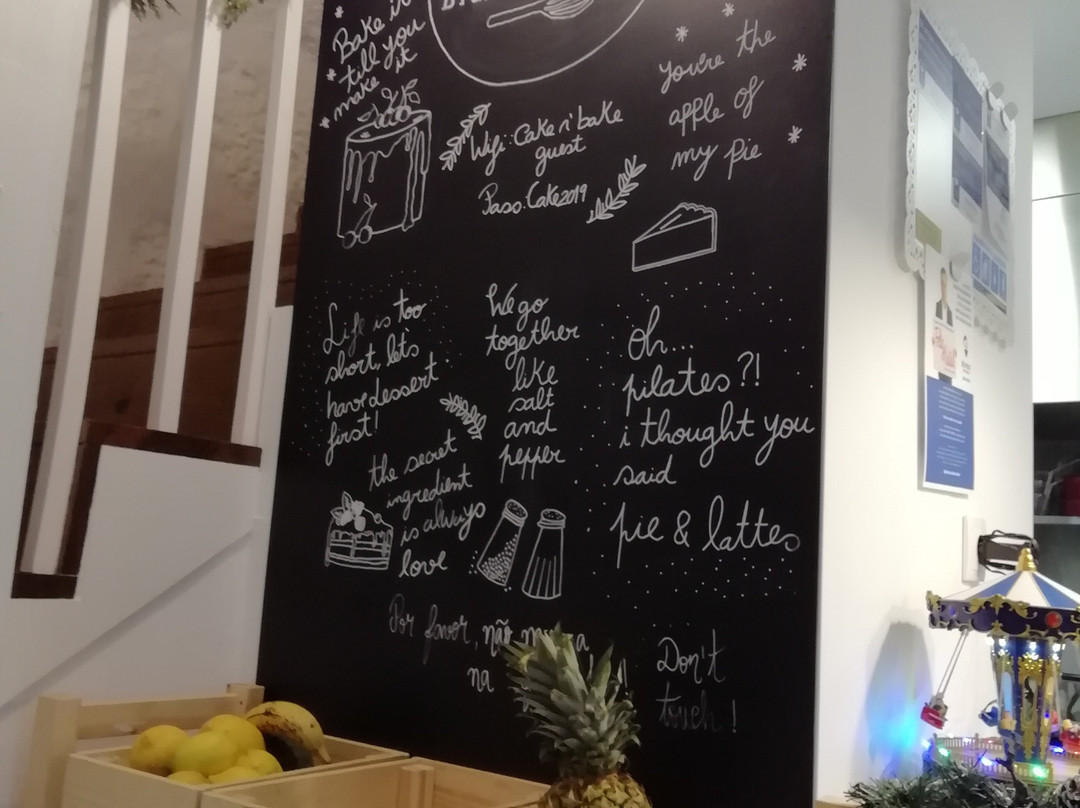 Bake it
till you
make it
Wifi: Cake n' bake
guest
Pass: Cake2019
You're the
apple of
my pie
Life is too
short, let's
have dessert
first!
We go
together
like
salt
and
pepper
oh...
pilates?!
i thought you
said
pie & lattes
the secret
ingredient
is always
love
Por favor, não
na
Don't
touch!